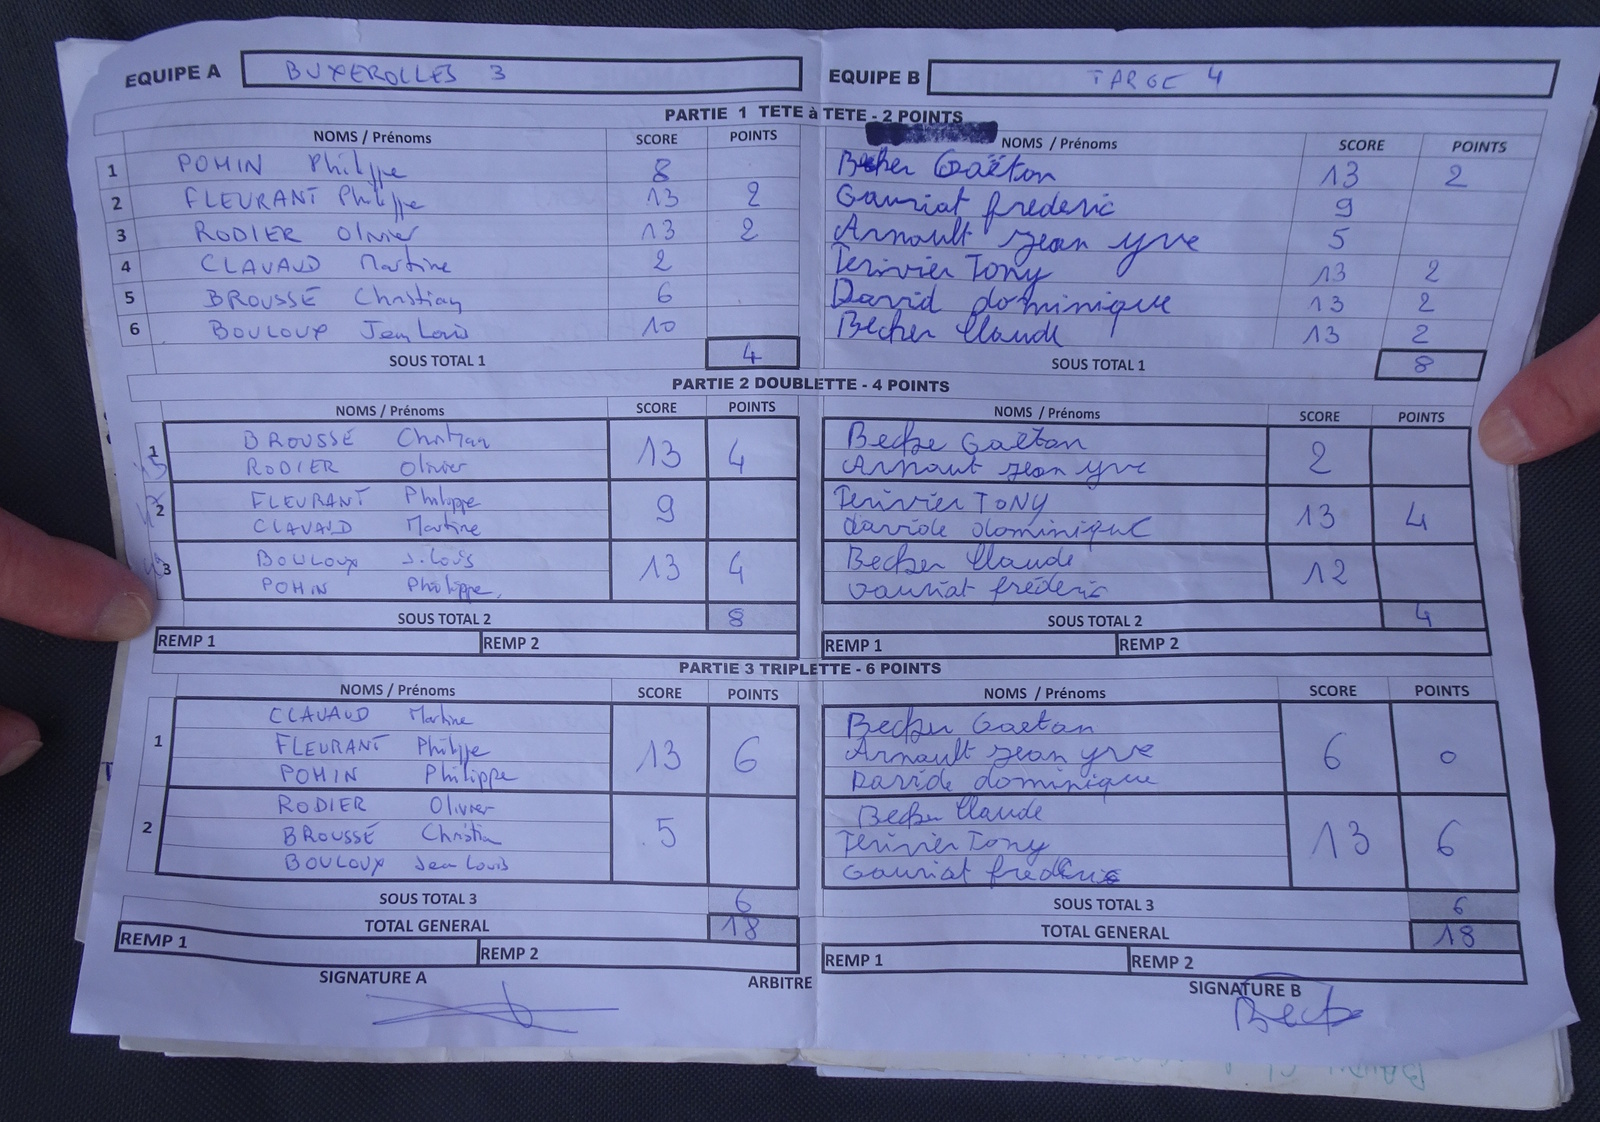 EQUIPE A BUXEROLLES 3 EQUIPE B TARGE 4
PARTIE 1 TETE à TETE - 2 POINTS
NOMS / Prénoms SCORE POINTS NOMS / Prénoms SCORE POINTS
1 POHIN Philippe 8 Becker Gaëton 13 2
2 FLEURANT Philippe 13 2 Gauriat frederic 9
3 RODIER Olivier 13 2 Arnault jean yve 5
4 CLAVAUD Martine 2 Terivier Tony 13 2
5 BROUSSE Christian 6 David dominique 13 2
6 BOULOUX Jean Louis 10 Becker Claude 13 2
SOUS TOTAL 1 4 SOUS TOTAL 1 8
PARTIE 2 DOUBLETTE - 4 POINTS
NOMS / Prénoms SCORE POINTS NOMS / Prénoms SCORE POINTS
1 BROUSSE Christian 13 4 Becke Gaëtan 2
RODIER Olivier Arnaut jean yve
2 FLEURANT Philippe 9 Terivier TONY 13 4
CLAVAUD Martine davide dominique
3 BOULOUX J.Louis 13 4 Becker Claude 12
POHIN Philippe Gauriat fréderic
SOUS TOTAL 2 8 SOUS TOTAL 2 4
REMP 1 REMP 2 REMP 1 REMP 2
PARTIE 3 TRIPLETTE - 6 POINTS
NOMS / Prénoms SCORE POINTS NOMS / Prénoms SCORE POINTS
1 CLAVAUD Martine 13 6 Becker Gaetan 6 0
FLEURANT Philippe Arnault jean yve
POHIN Philippe Davide dominique
2 RODIER Olivier 5 Becker Claude 13 6
BROUSSE Christian Terivier Tony
BOULOUX Jean Louis Gauriat fréderic
SOUS TOTAL 3 6 SOUS TOTAL 3 6
TOTAL GENERAL 18 TOTAL GENERAL 18
REMP 1 REMP 2 REMP 1 REMP 2
SIGNATURE A ARBITRE SIGNATURE B